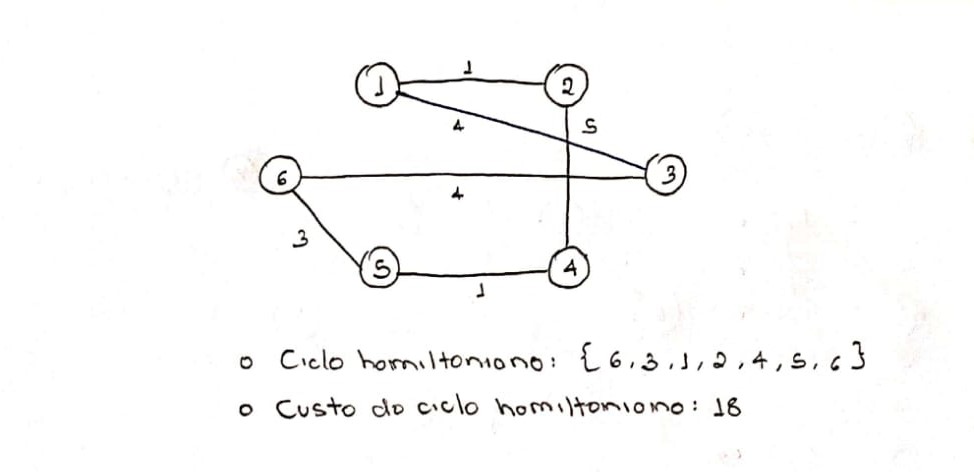 1
1
2
4
5
6
3
4
3
5
4
1
o Ciclo hamiltoniano: { 6, 3, 1, 2, 4, 5, 6 }
o Custo do ciclo hamiltoniano: 18